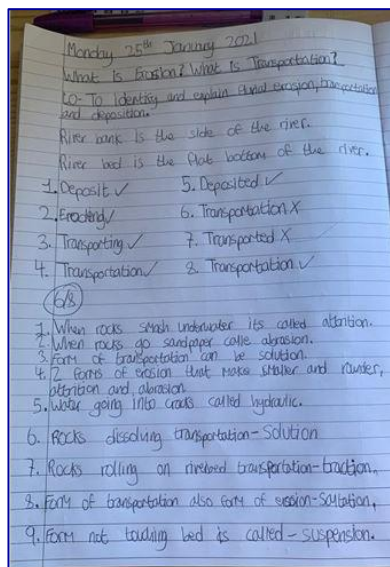 Monday 25th January 2021
What Is Erosion? What Is Transportation?
LO- To Identify and explain fluvial erosion, transportation
and deposition.
River bank is the side of the river.
River bed is the flat bottom of the river.
1. Deposit ✓ 5. Deposited ✓
2. Eroding ✓ 6. Transportation X
3. Transporting ✓ 7. Transported X
4. Transportation ✓ 8. Transportation ✓
6/8
1. When rocks smash underwater its called attrition.
2. When rocks go sandpaper calle abrasion.
3. Form of transportation can be solution.
4. 2 forms of erosion that make smaller and rounder,
attrition and, abrasion.
5. Water going into cracks called hydraulic.
6. Rocks dissolving transportation - solution
7. Rocks rolling on riverbed transportation - traction.
8. Form of transportation also form of erosion - saltation,
9. Form not touching bed is called - suspension.